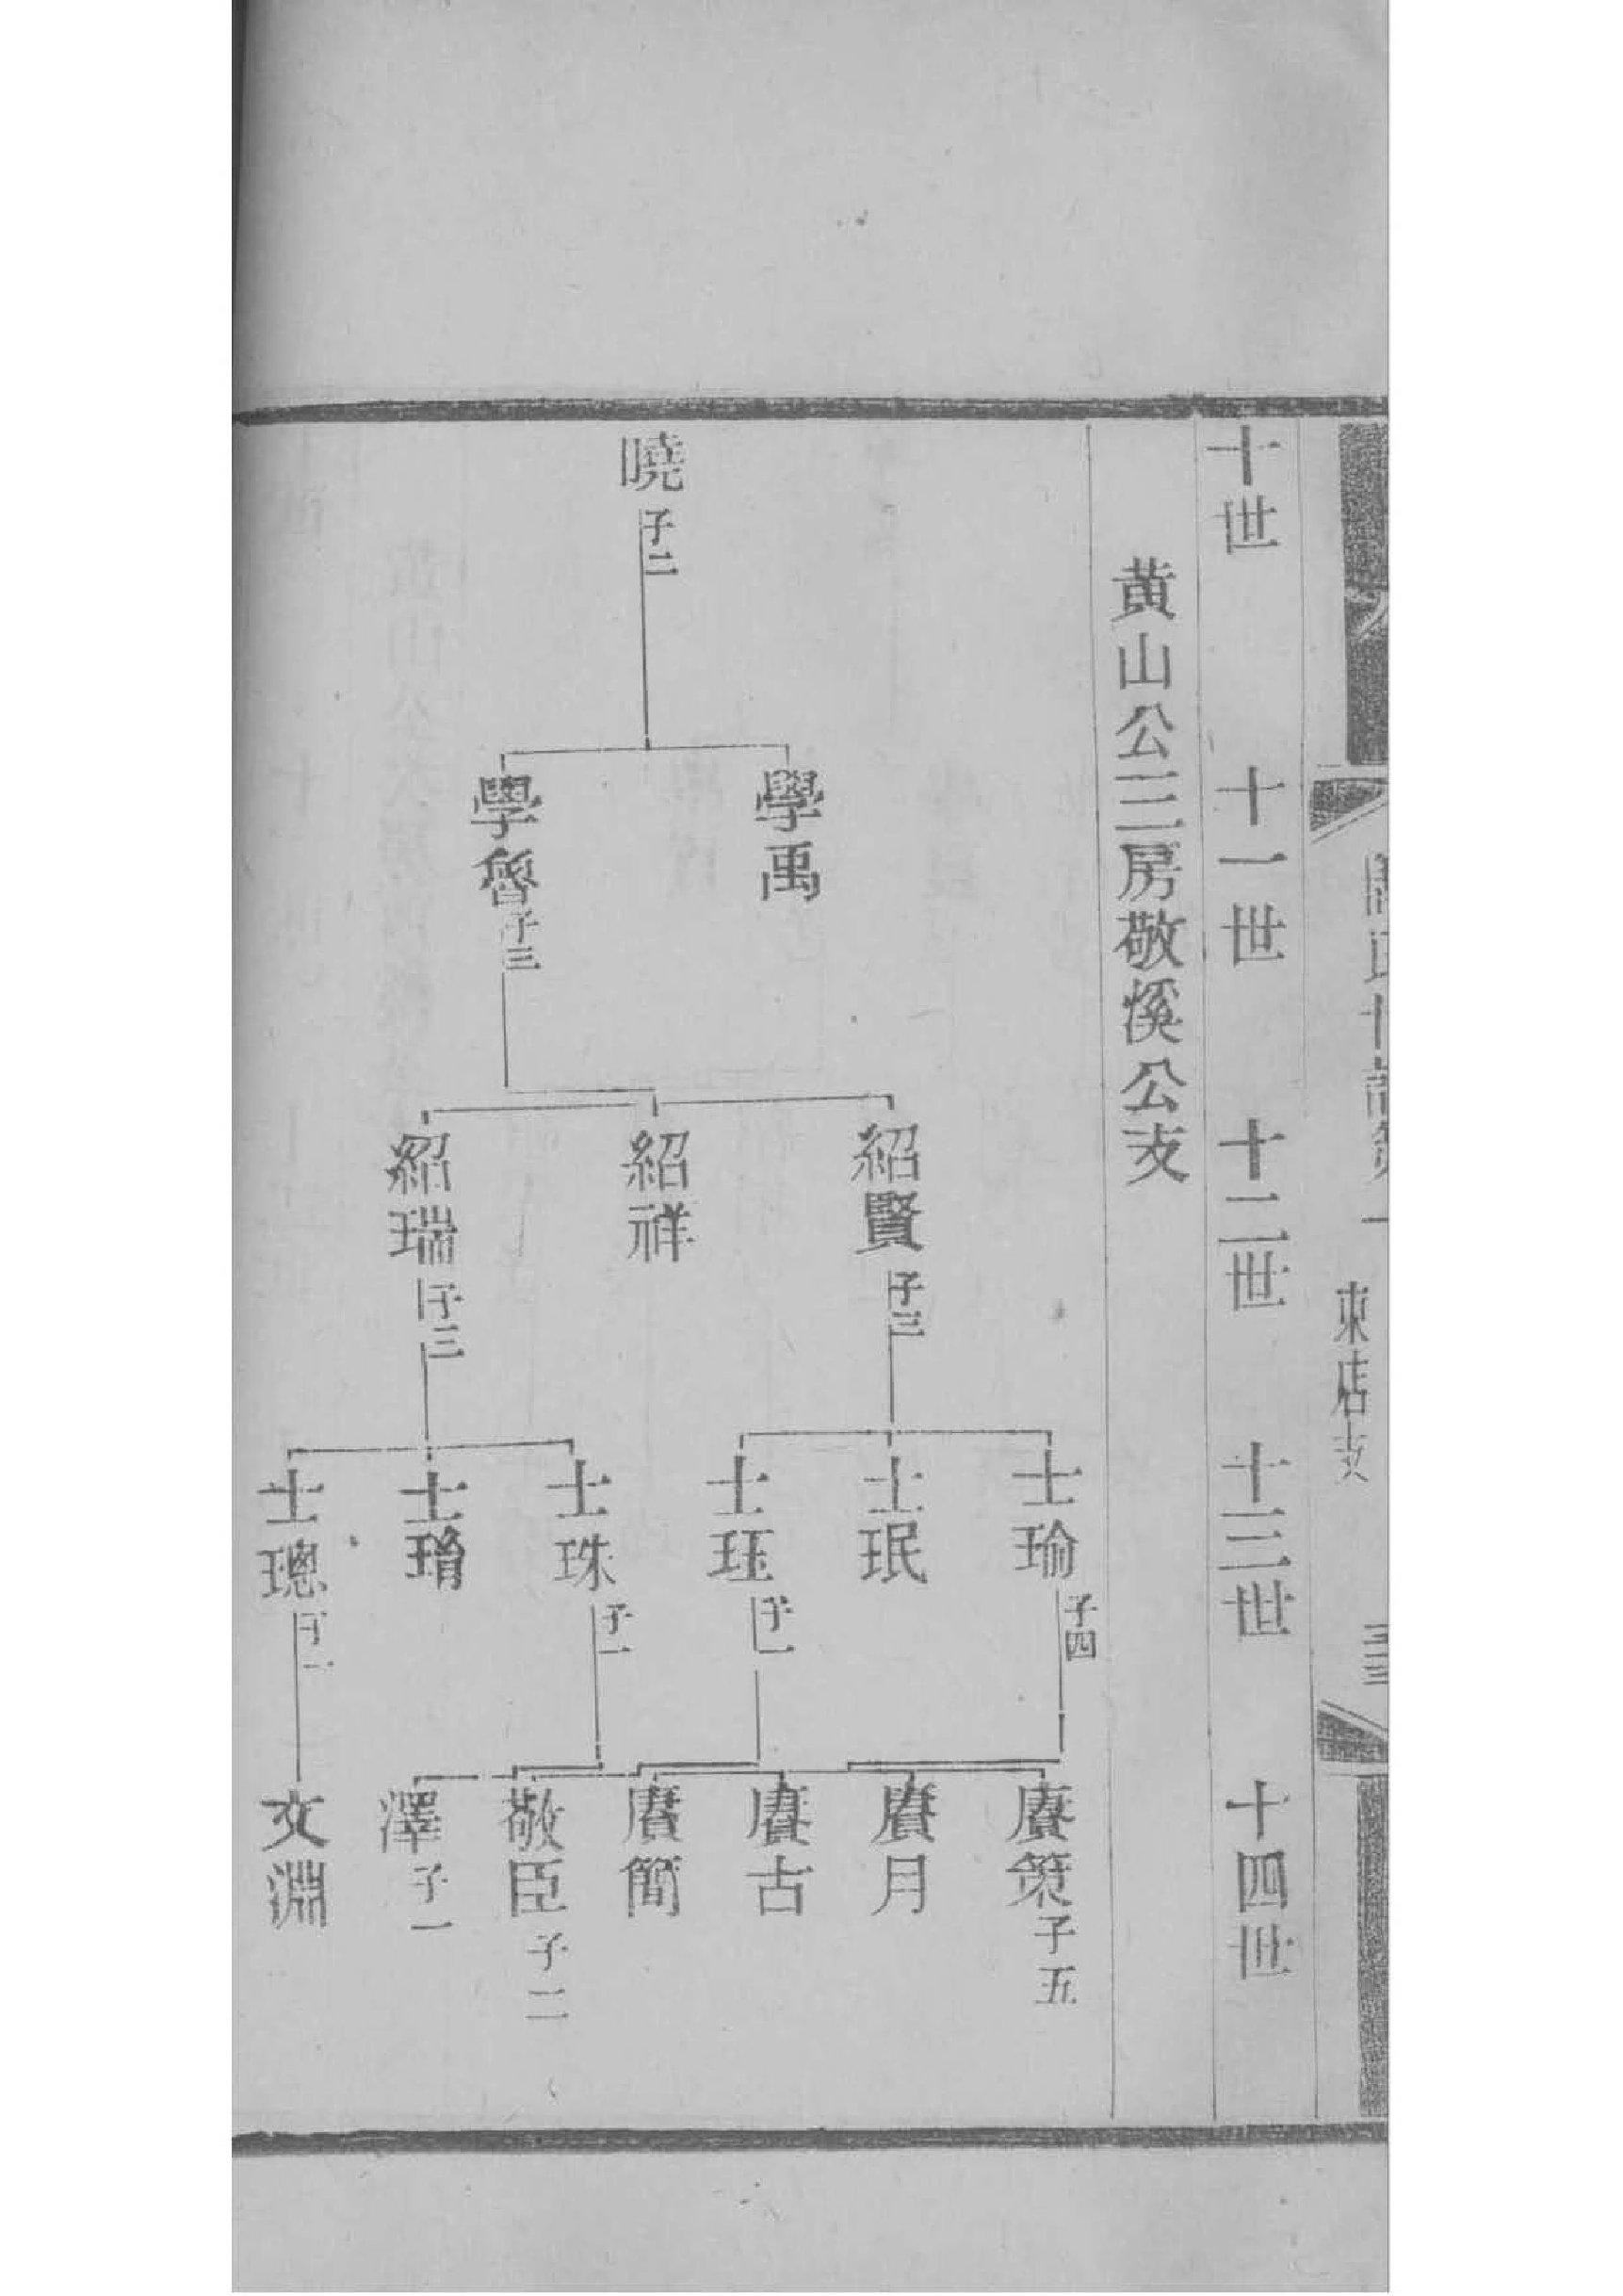 東店支
十世
十一世
十二世
十三世
十四世
黄山公三房敬溪公支
曉 子二
學禹
學魯 子三
紹賢 子三
紹祥
紹瑞 子三
士瑜 子四
士珉
士珏 子一
士珠 子一
士瑣
士璁 子一
賡策 子五
賡月
賡古
賡簡
敬臣 子二
澤 子一
文淵